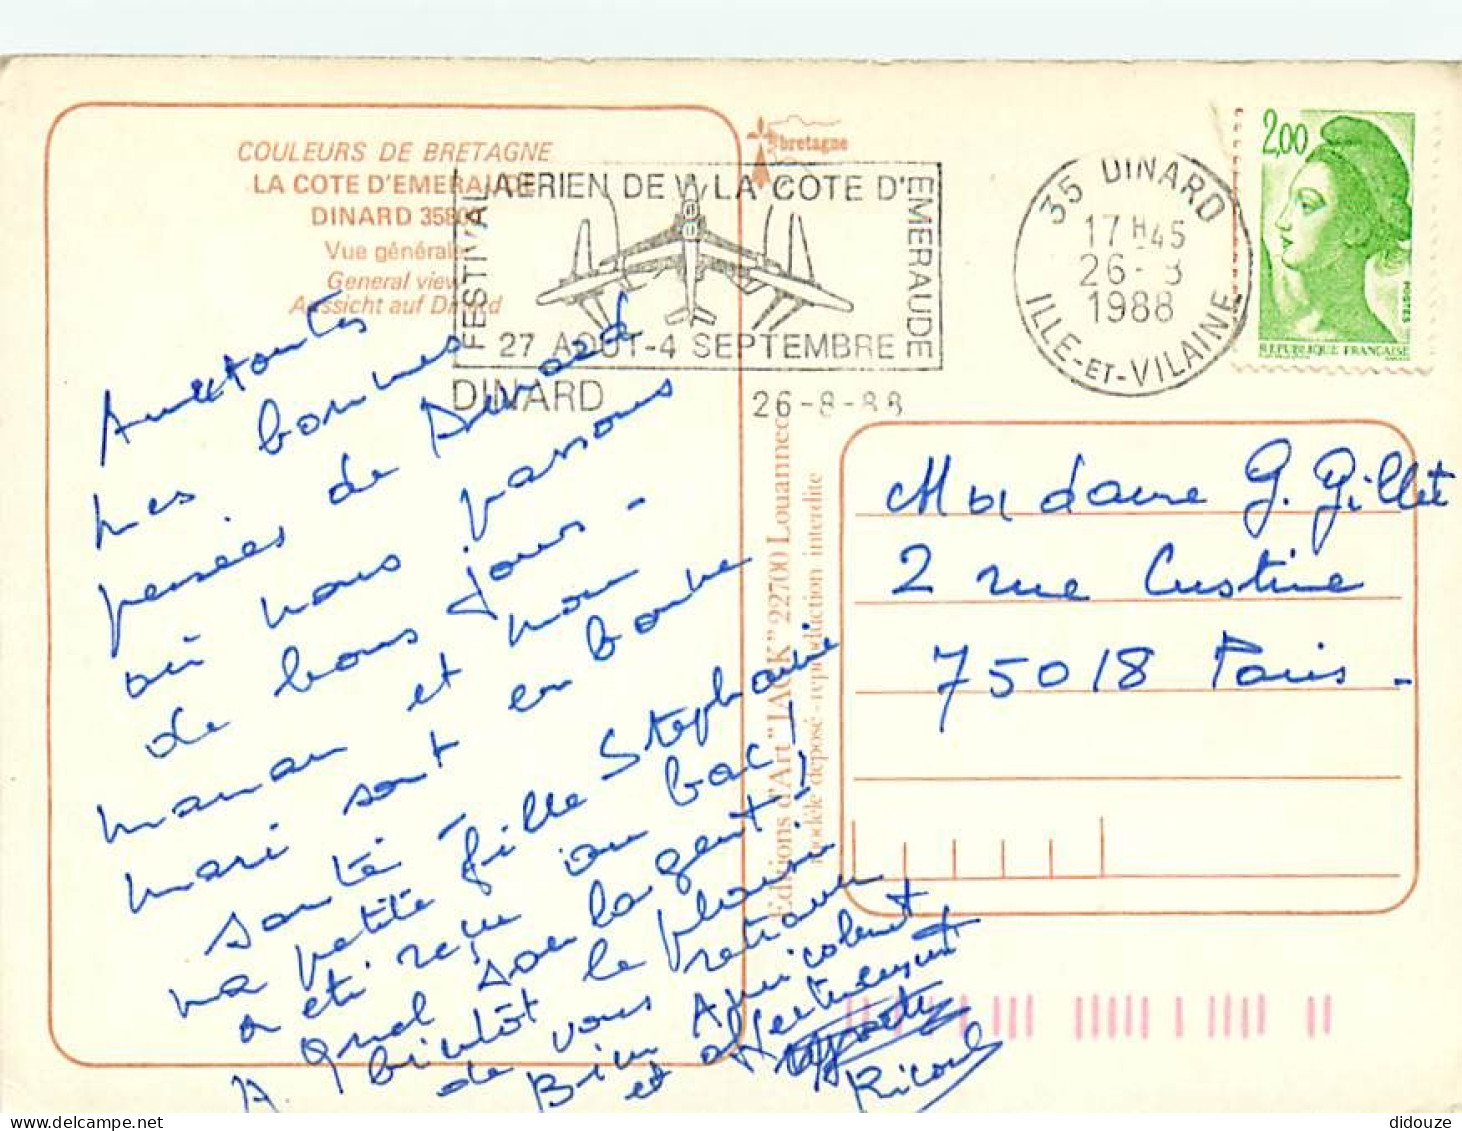 COULEURS DE BRETAGNE
LA COTE D'EMERAUDE
DINARD 35800
Vue générale
General view
Aussicht auf Dinard
bretagne
FESTIVAL AERIEN DE LA COTE D'EMERAUDE
27 AOUT-4 SEPTEMBRE
DINARD
26-8-88
35 DINARD
17H45
26-8
1988
ILLE-ET-VILAINE
2,00
POSTES
REPUBLIQUE FRANÇAISE
toutes
mes bonnes
pensées de Dinard
où nous passons
de bons jours -
maman et mon
mari sont en bonne
santé -
ma petite fille Stephanie
a été reçu au bac !
Quel soulagement !
A bientôt le plaisir
de vous retrouver
Bien Amicalement
et affectueusement
Editions d'Art "JACK" 22700 Louannec
modèle déposé - reproduction interdite
Madame G. Gillet
2 rue Custine
75018 Paris -
didouze